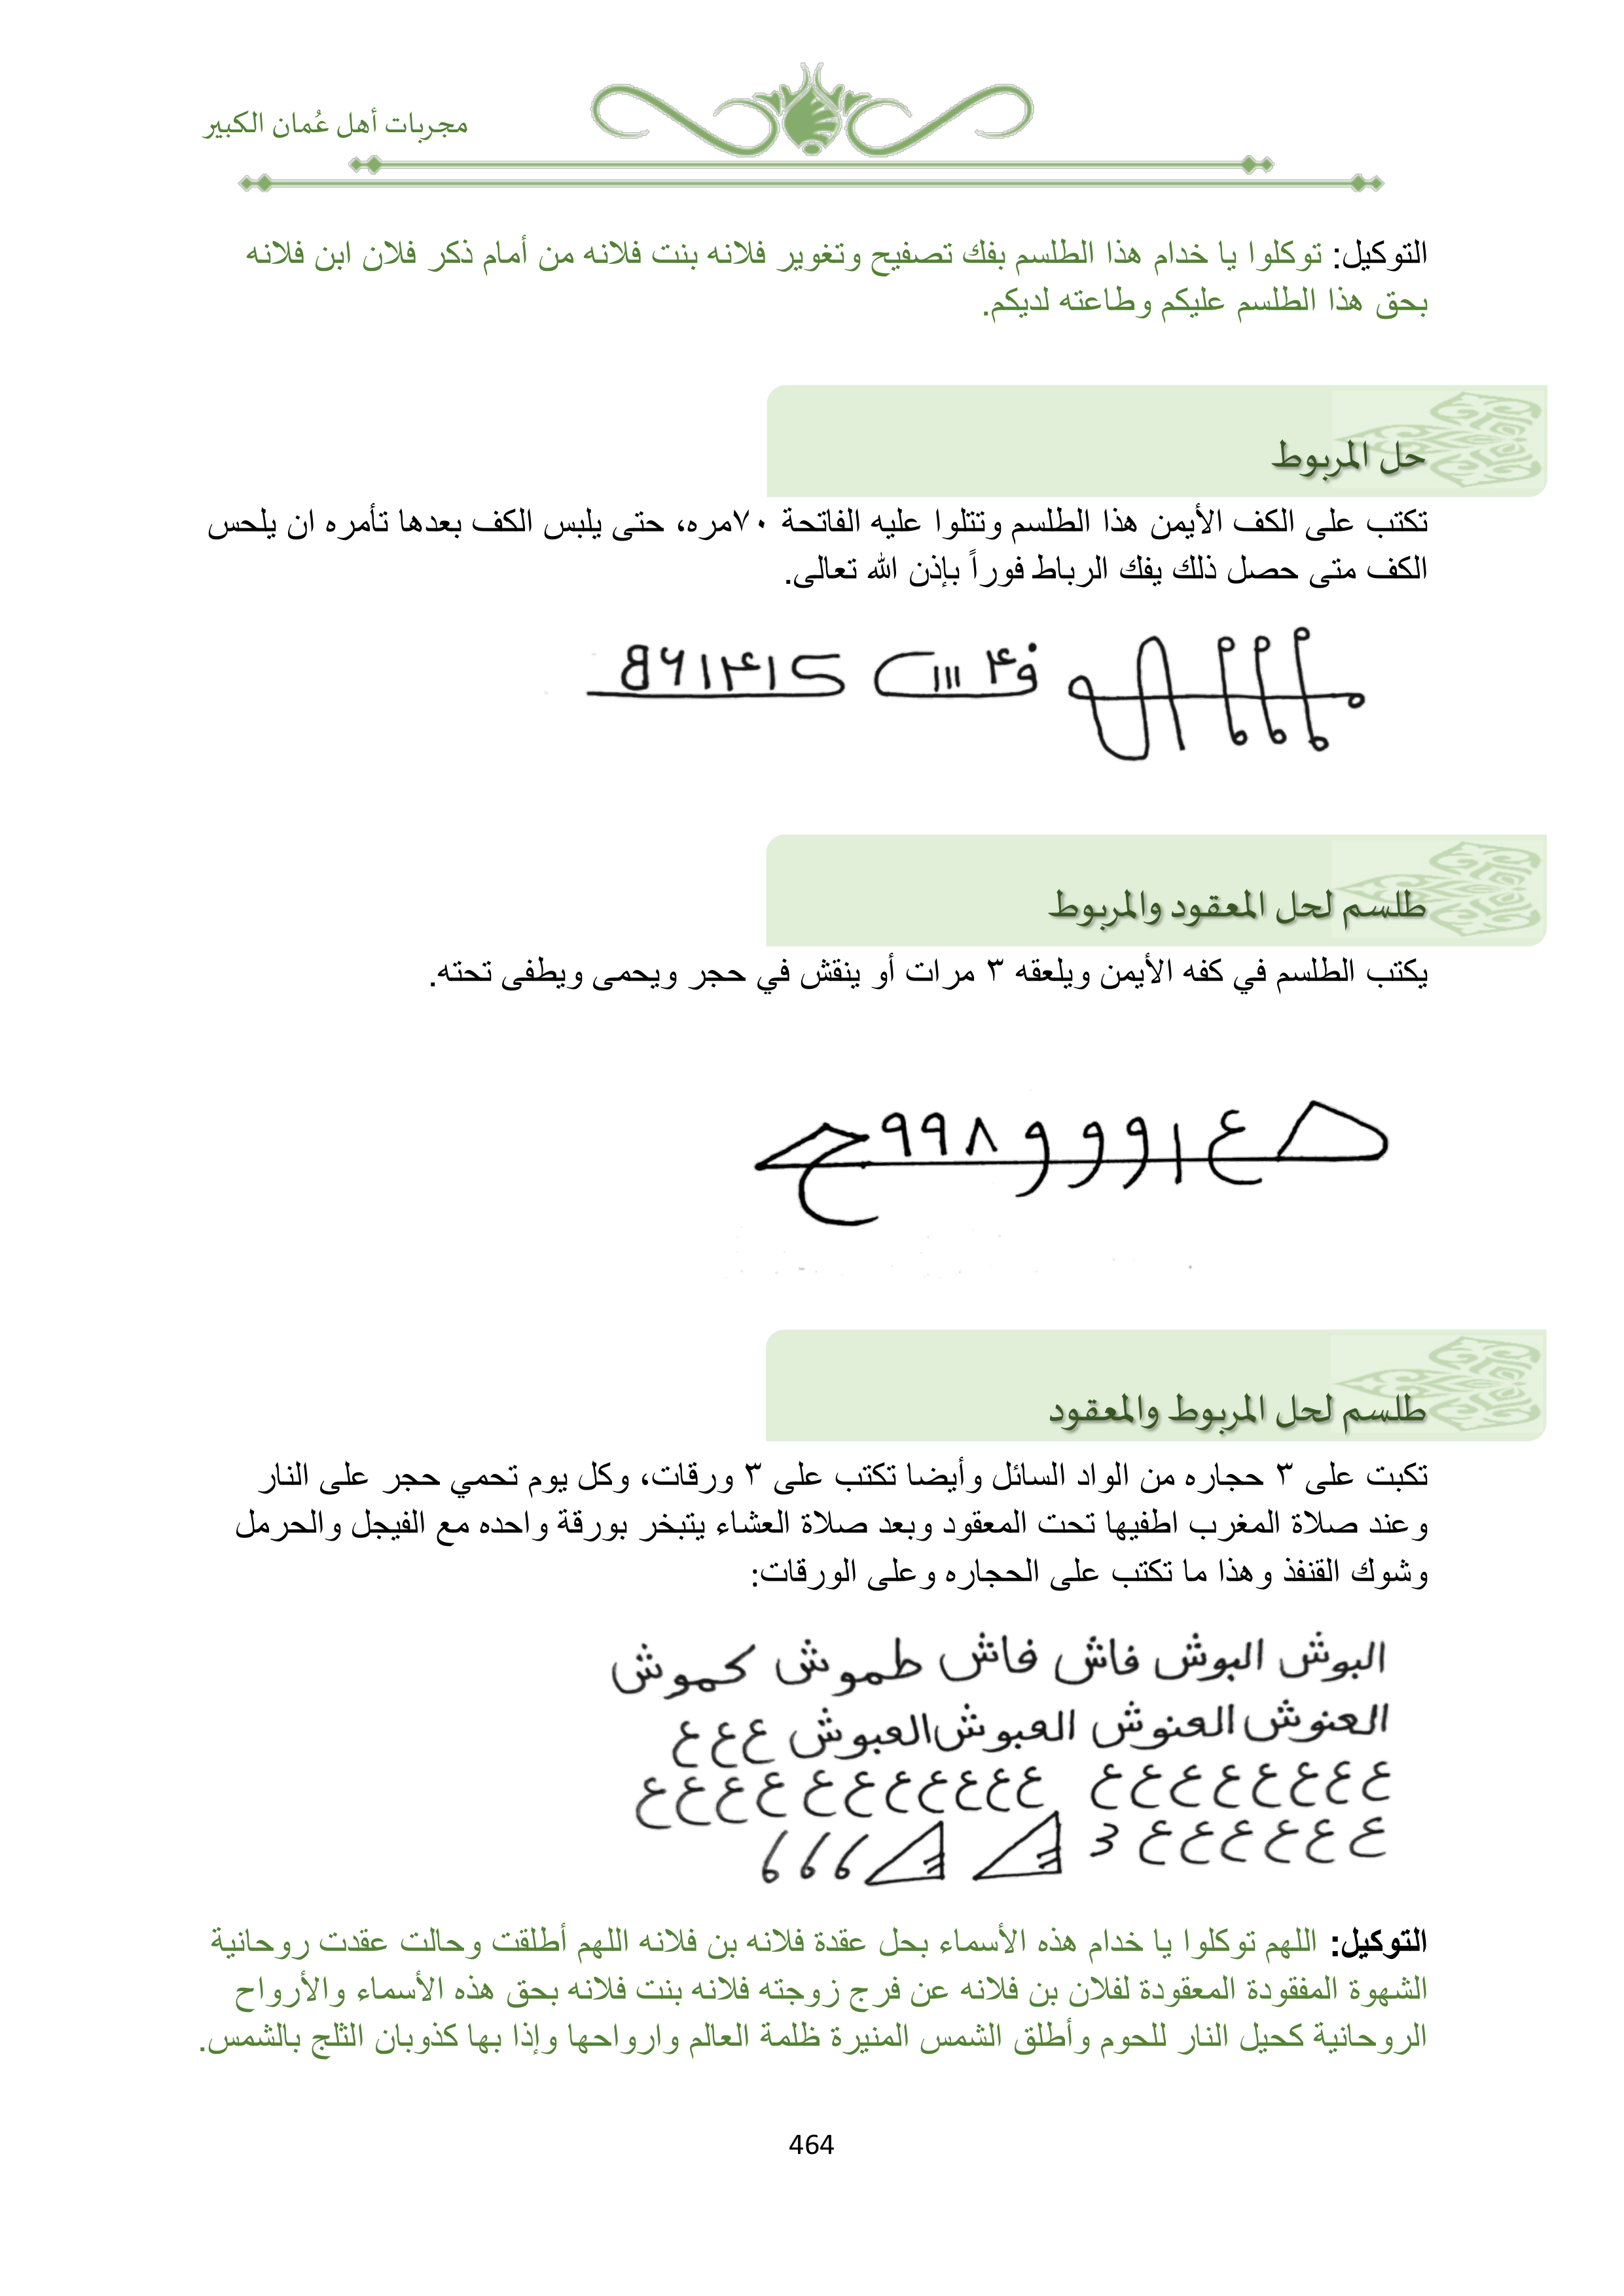 مجربات أهل عُمان الكبير
التوكيل: توكلوا يا خدام هذا الطلسم بفك تصفيح وتغوير فلانه بنت فلانه من أمام ذكر فلان ابن فلانه
بحق هذا الطلسم عليكم وطاعته لديكم.
حل المربوط
تكتب على الكف الأيمن هذا الطلسم وتتلوا عليه الفاتحة ٧٠مره، حتى يلبس الكف بعدها تأمره ان يلحس
الكف متى حصل ذلك يفك الرباط فوراً بإذن الله تعالى.
طلسم لحل المعقود والمربوط
يكتب الطلسم في كفه الأيمن ويلعقه ٣ مرات أو ينقش في حجر ويحمى ويطفى تحته.
طلسم لحل المربوط والمعقود
تكبت على ٣ حجاره من الواد السائل وأيضا تكتب على ٣ ورقات، وكل يوم تحمي حجر على النار
وعند صلاة المغرب اطفيها تحت المعقود وبعد صلاة العشاء يتبخر بورقة واحده مع الفيجل والحرمل
وشوك القنفذ وهذا ما تكتب على الحجاره وعلى الورقات:
البوش البوش فاش فاش طموش كموش
العنوش العنوش العبوش العبوش ع ع ع
ع ع ع ع ع ع ع ع ع ع ع ع ع ع ع ع ع ع
ع ع ع ع ع ع
التوكيل: اللهم توكلوا يا خدام هذه الأسماء بحل عقدة فلانه بن فلانه اللهم أطلقت وحالت عقدت روحانية
الشهوة المفقودة المعقودة لفلان بن فلانه عن فرج زوجته فلانه بنت فلانه بحق هذه الأسماء والأرواح
الروحانية كحيل النار للحوم وأطلق الشمس المنيرة ظلمة العالم وارواحها وإذا بها كذوبان الثلج بالشمس.
464